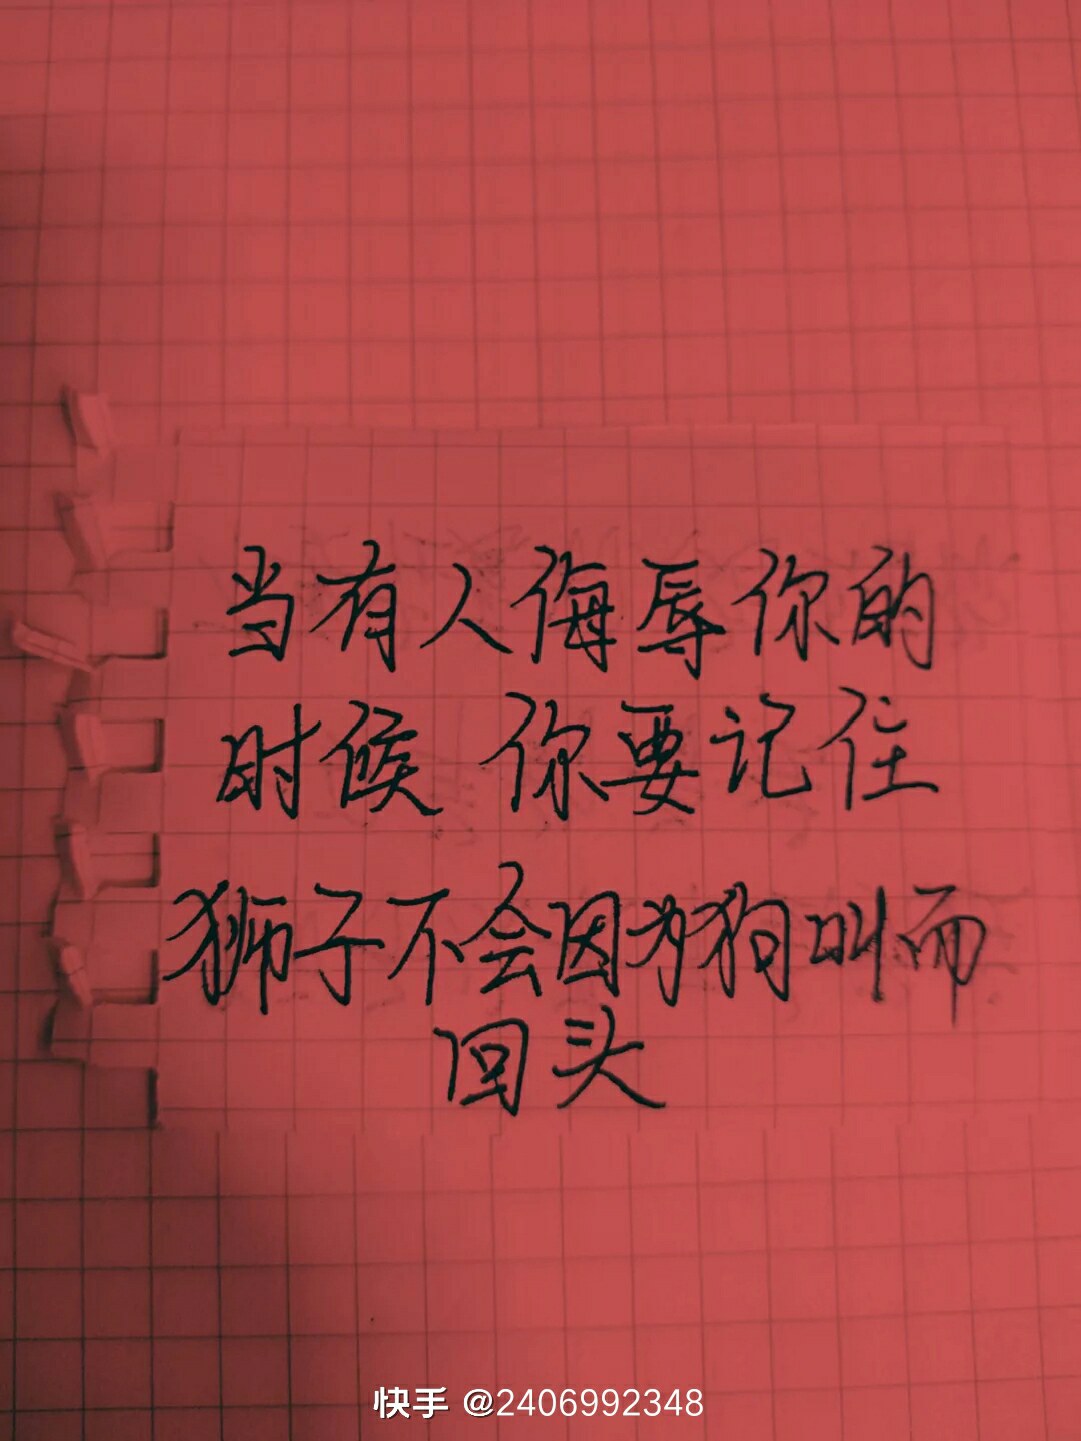 当有人侮辱你的
时候 你要记住
狮子不会因为狗叫而
回头
快手 @2406992348